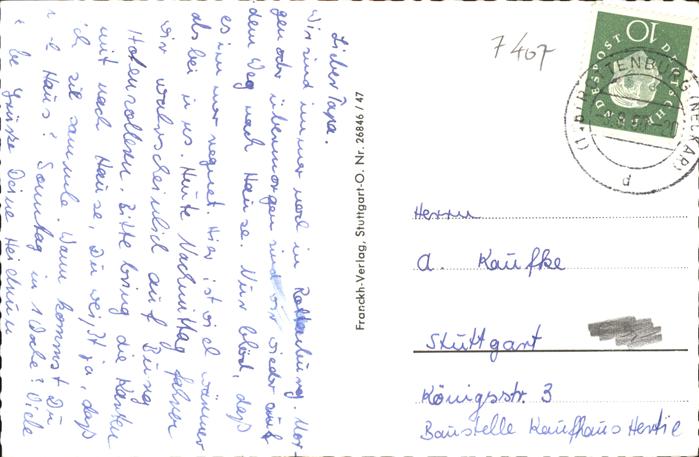 Lieber Papa.
Wir sind immer noch in Rottenburg. Mor-
gen oder übermorgen sind wir wieder auf
dem Weg nach Hause. Nur blöd, daß
es immer regnet. Hier ist viel wärmer
als bei uns. Heute Nachmittag fahren
wir wahrscheinlich auf Burg
Hohenzollern. Bitte bring die Karten
mit nach Hause, Du weißt ja, daß
ich sie sammle. Wann kommst Du
Haus? Sonntag in
Grüsse Deine Heidrun
Franckh-Verlag, Stuttgart-O. Nr. 26846 / 47
7 407
10
DEUTSCHE BUNDESPOST
ROTTENBURG (NECKAR)
d
Herrn
A. Kaufke
Stuttgart
Königsstr. 3
Baustelle Kaufhaus Hertie